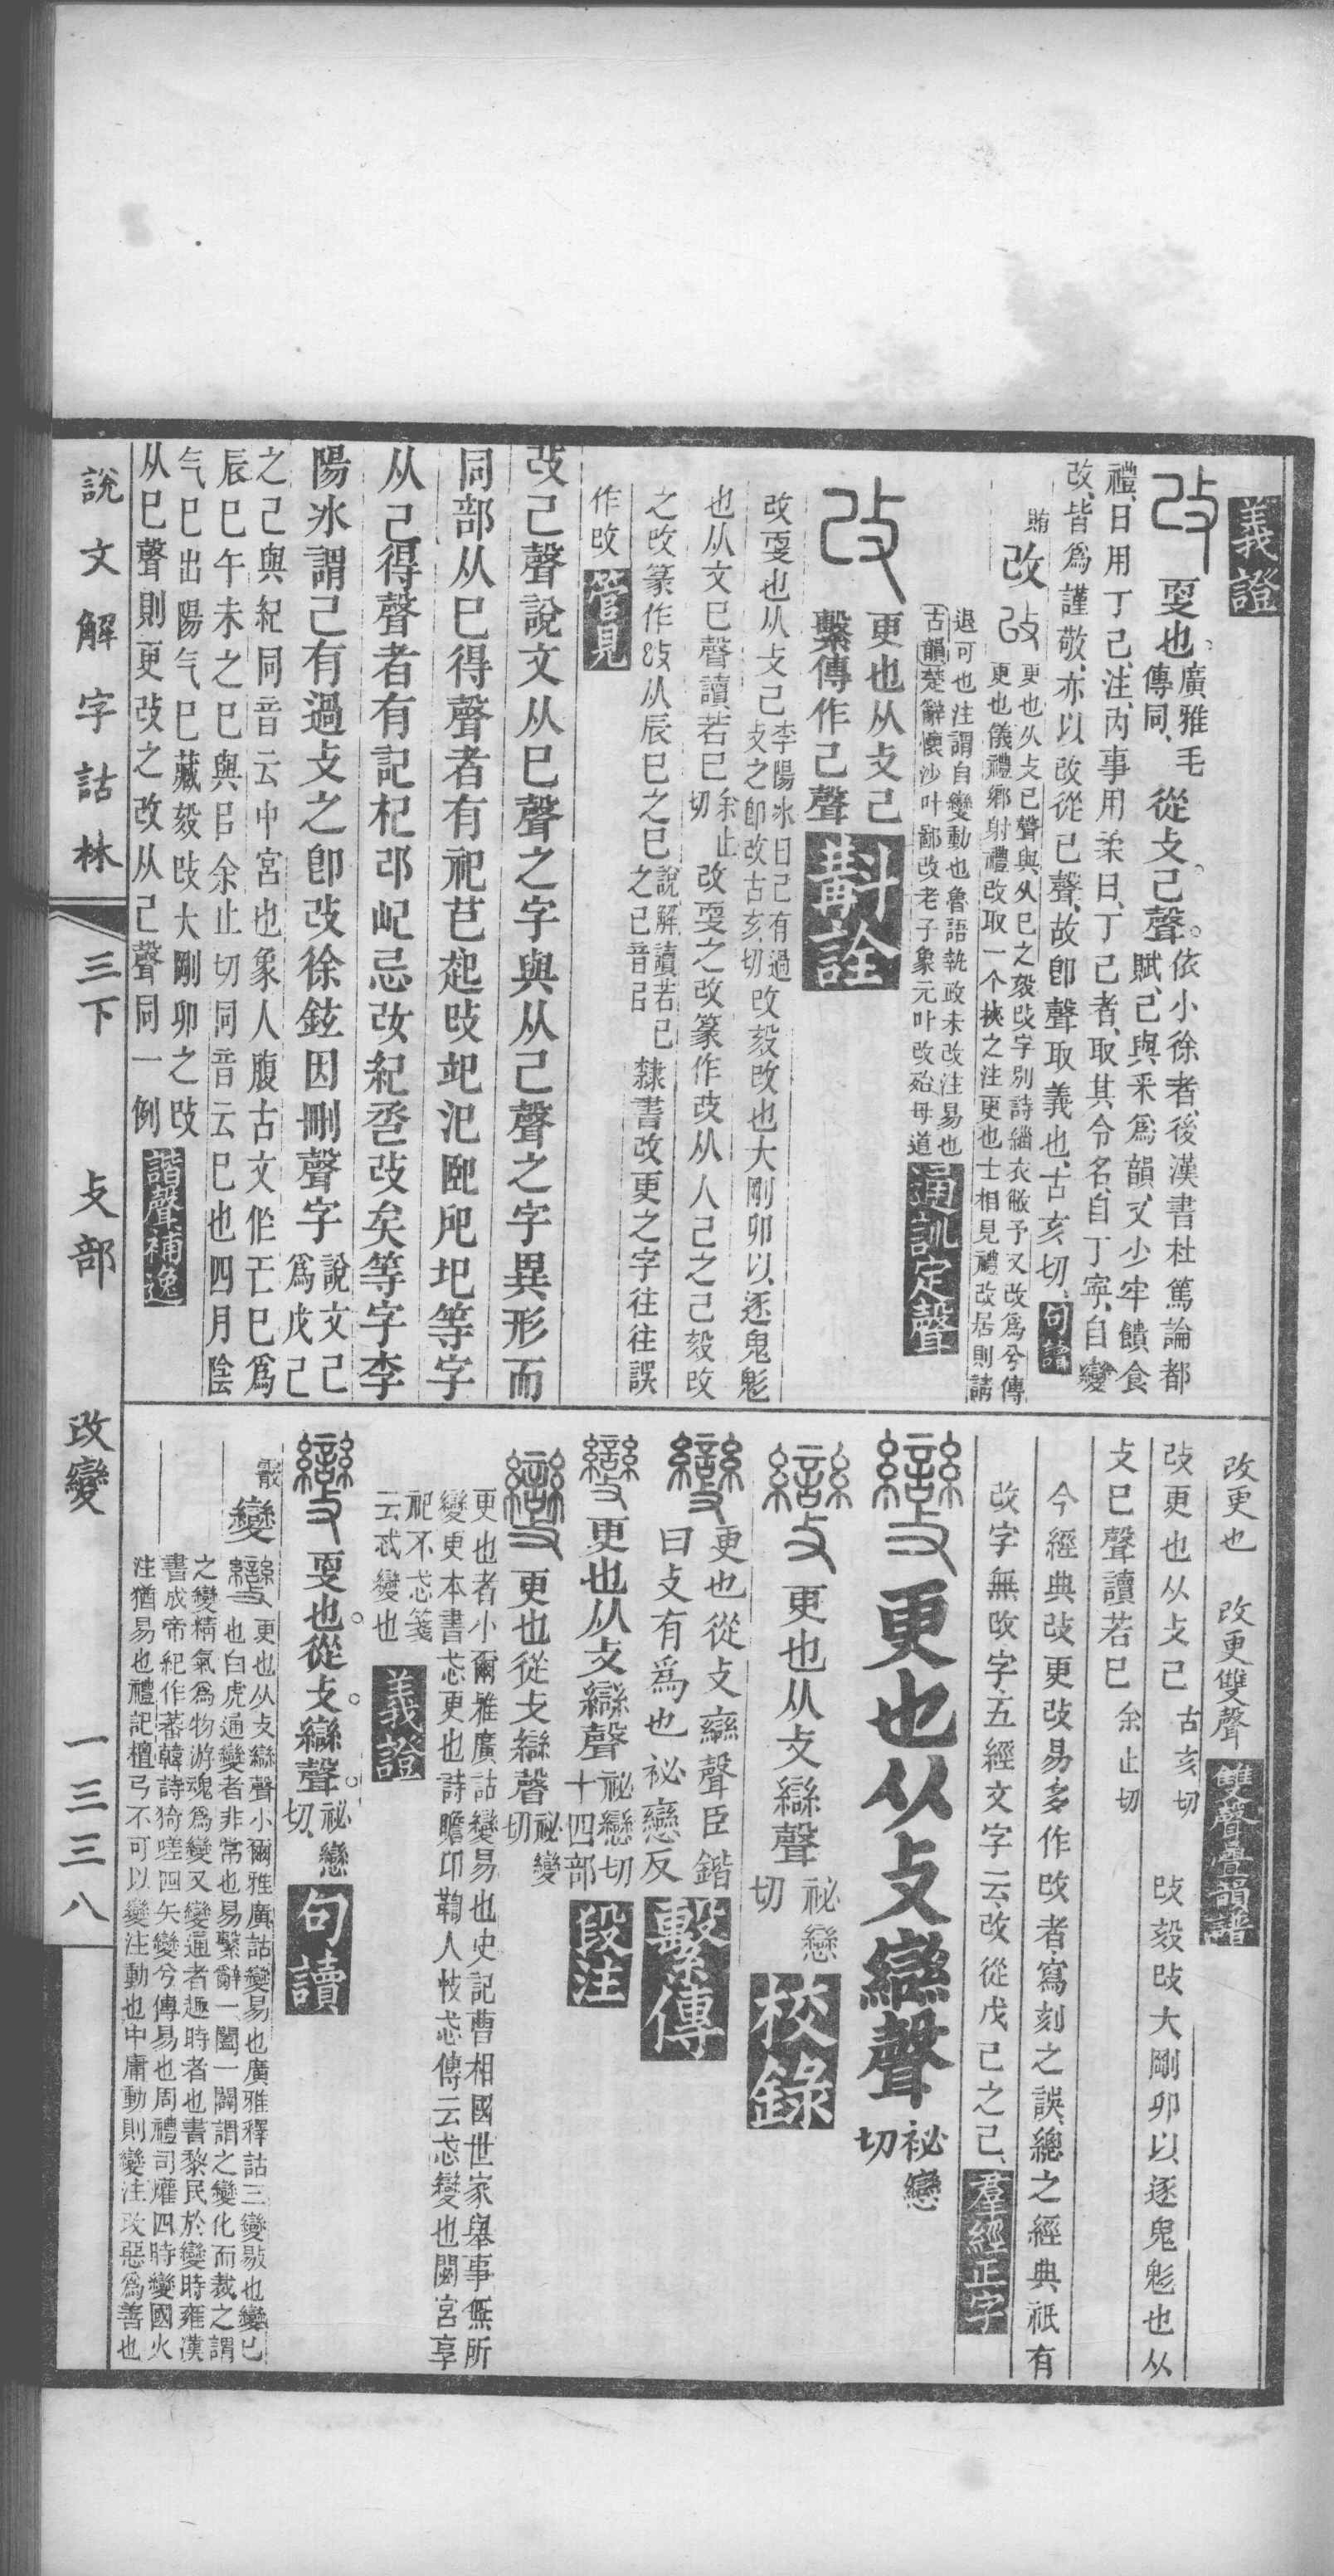 義證
改 㪅也。廣雅毛傳同、從攴。己聲。依小徐者、後漢書杜篤論都賦、己與釆爲韻、又少牢饋食
禮、日用丁己、注、內事用柔日、丁己者、取其令名、自丁寧、自變
改、皆爲謹敬、亦以改從己聲、故卽聲取義也、古亥切、句讀
賄 改 更也从攴己聲與从巳之毅攺字別詩緇衣敝予又改爲兮傳更也儀禮鄉射禮改取一个挾之注更也士相見禮改居則請
退可也注謂自變動也魯語執政未改注易也古韻楚辭懷沙叶鄙改老子象元叶改殆母道 通訓定聲
改 更也从攴己繫傳作己聲 斠詮
改㪅也从攴己李陽冰曰己有過攴之卽改古亥切攺毅攺也大剛卯以逐鬼鬽
也从攴巳聲讀若巳余止切改㪅之改篆作改从人己之己毅攺
之攺篆作攺从辰巳之巳說解讀若巳之巳音㠯隸書改更之字往往誤
作攺 管見
改己聲說文从巳聲之字與从己聲之字異形而
同部从巳得聲者有祀芑起攺圯汜巸戺圮等字
从己得聲者有記杞邔屺忌改紀卺改㠱等字李
陽冰謂己有過攴之卽改徐鉉因刪聲字說文己爲戊己
之己與紀同音云中宮也象人腹古文作𢀒巳爲
辰巳午未之巳與㠯余止切同音云巳也四月陰
气巳出陽气巳藏毅攺大剛卯之攺
从巳聲則更改之改从己聲同一例 諧聲補逸
改更也 改更雙聲 雙聲疊韻譜
改更也从攴己古亥切 攺毅攺大剛卯以逐鬼鬽也从
攴巳聲讀若巳余止切
今經典改更改易多作攺者寫刻之誤總之經典祇有
改字無攺字五經文字云改從戊己之己、羣經正字
變 更也从攴䜌聲祕戀切
變 更也从攴䜌聲祕戀切 校錄
變 更也從攴䜌聲臣鍇曰攴有爲也祕戀反 繫傳
變 更也从攴䜌聲祕戀切十四部 段注
變 更也從攴䜌聲祕變切
更也者小爾雅廣詁變易也史記曹相國世家舉事無所
變更本書忒更也詩瞻卬鞫人忮忒傳云忒變也閟宮享
祀不忒箋云忒變也 義證
變 㪅也。從攴。䜌聲。祕戀切、句讀
霰 變 更也从攴䜌聲小爾雅廣詁變易也廣雅釋詁三變敡也變匕也白虎通變者非常也易繫辭一闔一闢謂之變化而裁之謂
之變精氣爲物游魂爲變又變通者趣時者也書黎民於變時雍漢書成帝紀作蕃韓詩猗嗟四矢變兮傳易也周禮司爟四時變國火
注猶易也禮記檀弓不可以變注動也中庸動則變注改惡爲善也
說文解字詁林 三下 攴部 改變 一三三八